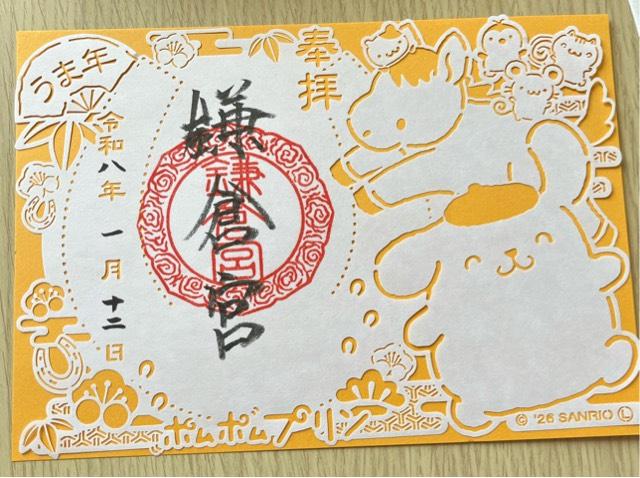 うま年
奉拝
鎌倉宮
令和八年 一月 十二日
ポムポムプリン
© '26 SANRIO Ⓛ